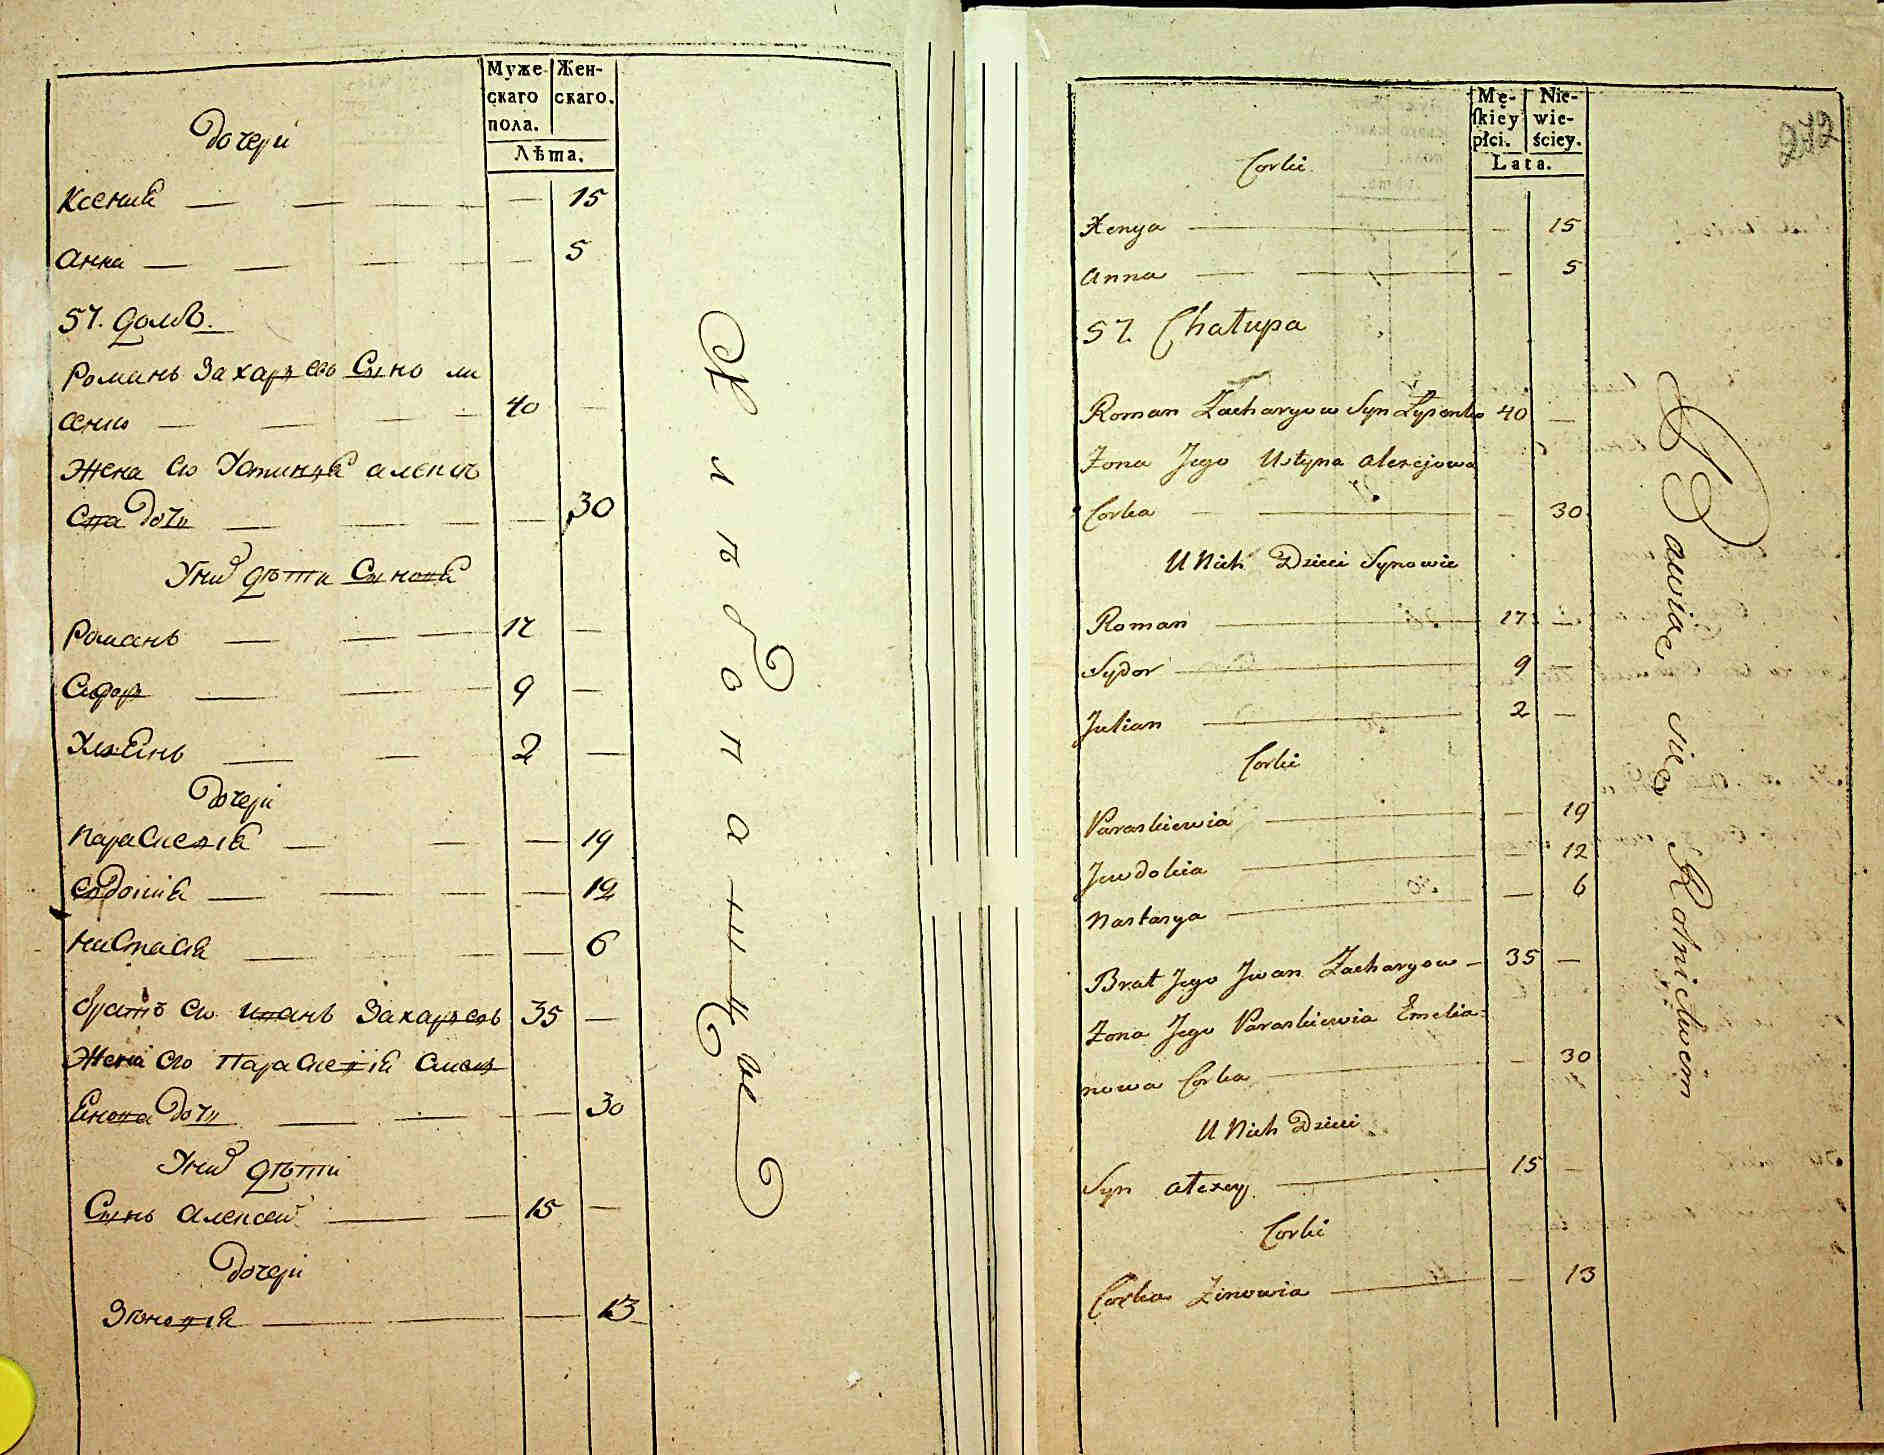 Муже-
скаго
пола.
Жен-
скаго.
Лѣта.
дочери
Ксения — — — — 15
Анна — — — — 5
57. домъ.
Романъ Захарьевъ Сынъ ли
сенко — — — 40 —
Жена его Устинья алексѣ
ева дочь — — — — 30
У них дѣти Сыновья
Романъ — — — 17 —
Сидоръ — — — 9 —
Улянъ — — — 2 —
дочери
Параскевия — — — 19
Евдокия — — — 12
Настася — — — 6
братъ его иванъ Захарьевъ 35 —
Жена его Параскевия Емель
янова дочь — — — 30
У них дѣти
Сынъ алексей — — 15 —
дочери
Зѣновия — — — 13
Хлѣбопашцы
Mę-
ſkiey
płci.
Nie-
wie-
ściey.
Lata.
272
Corki
Xenya — — 15
Anna — — — 5
57. Chałupa
Roman Zacharyow Syn Łysenko 40 —
Zona Jego Ustyna Alexejowa
Corka — — — 30
U Nich Dzieci Synowie
Roman — 17 —
Sydor — 9 —
Julian — 2 —
Corki
Paraskiewia — — 19
Jewdokia — — 12
Nastasya — — 6
Brat Jego Jwan Zacharyow — 35 —
Zona Jego Paraskiewia Emelia-
nowa Corka — — 30
U Nich Dzieci
Syn Alexey — 15 —
Corki
Corka Zinowia — — 13
Bawiąc się Rolnictwem